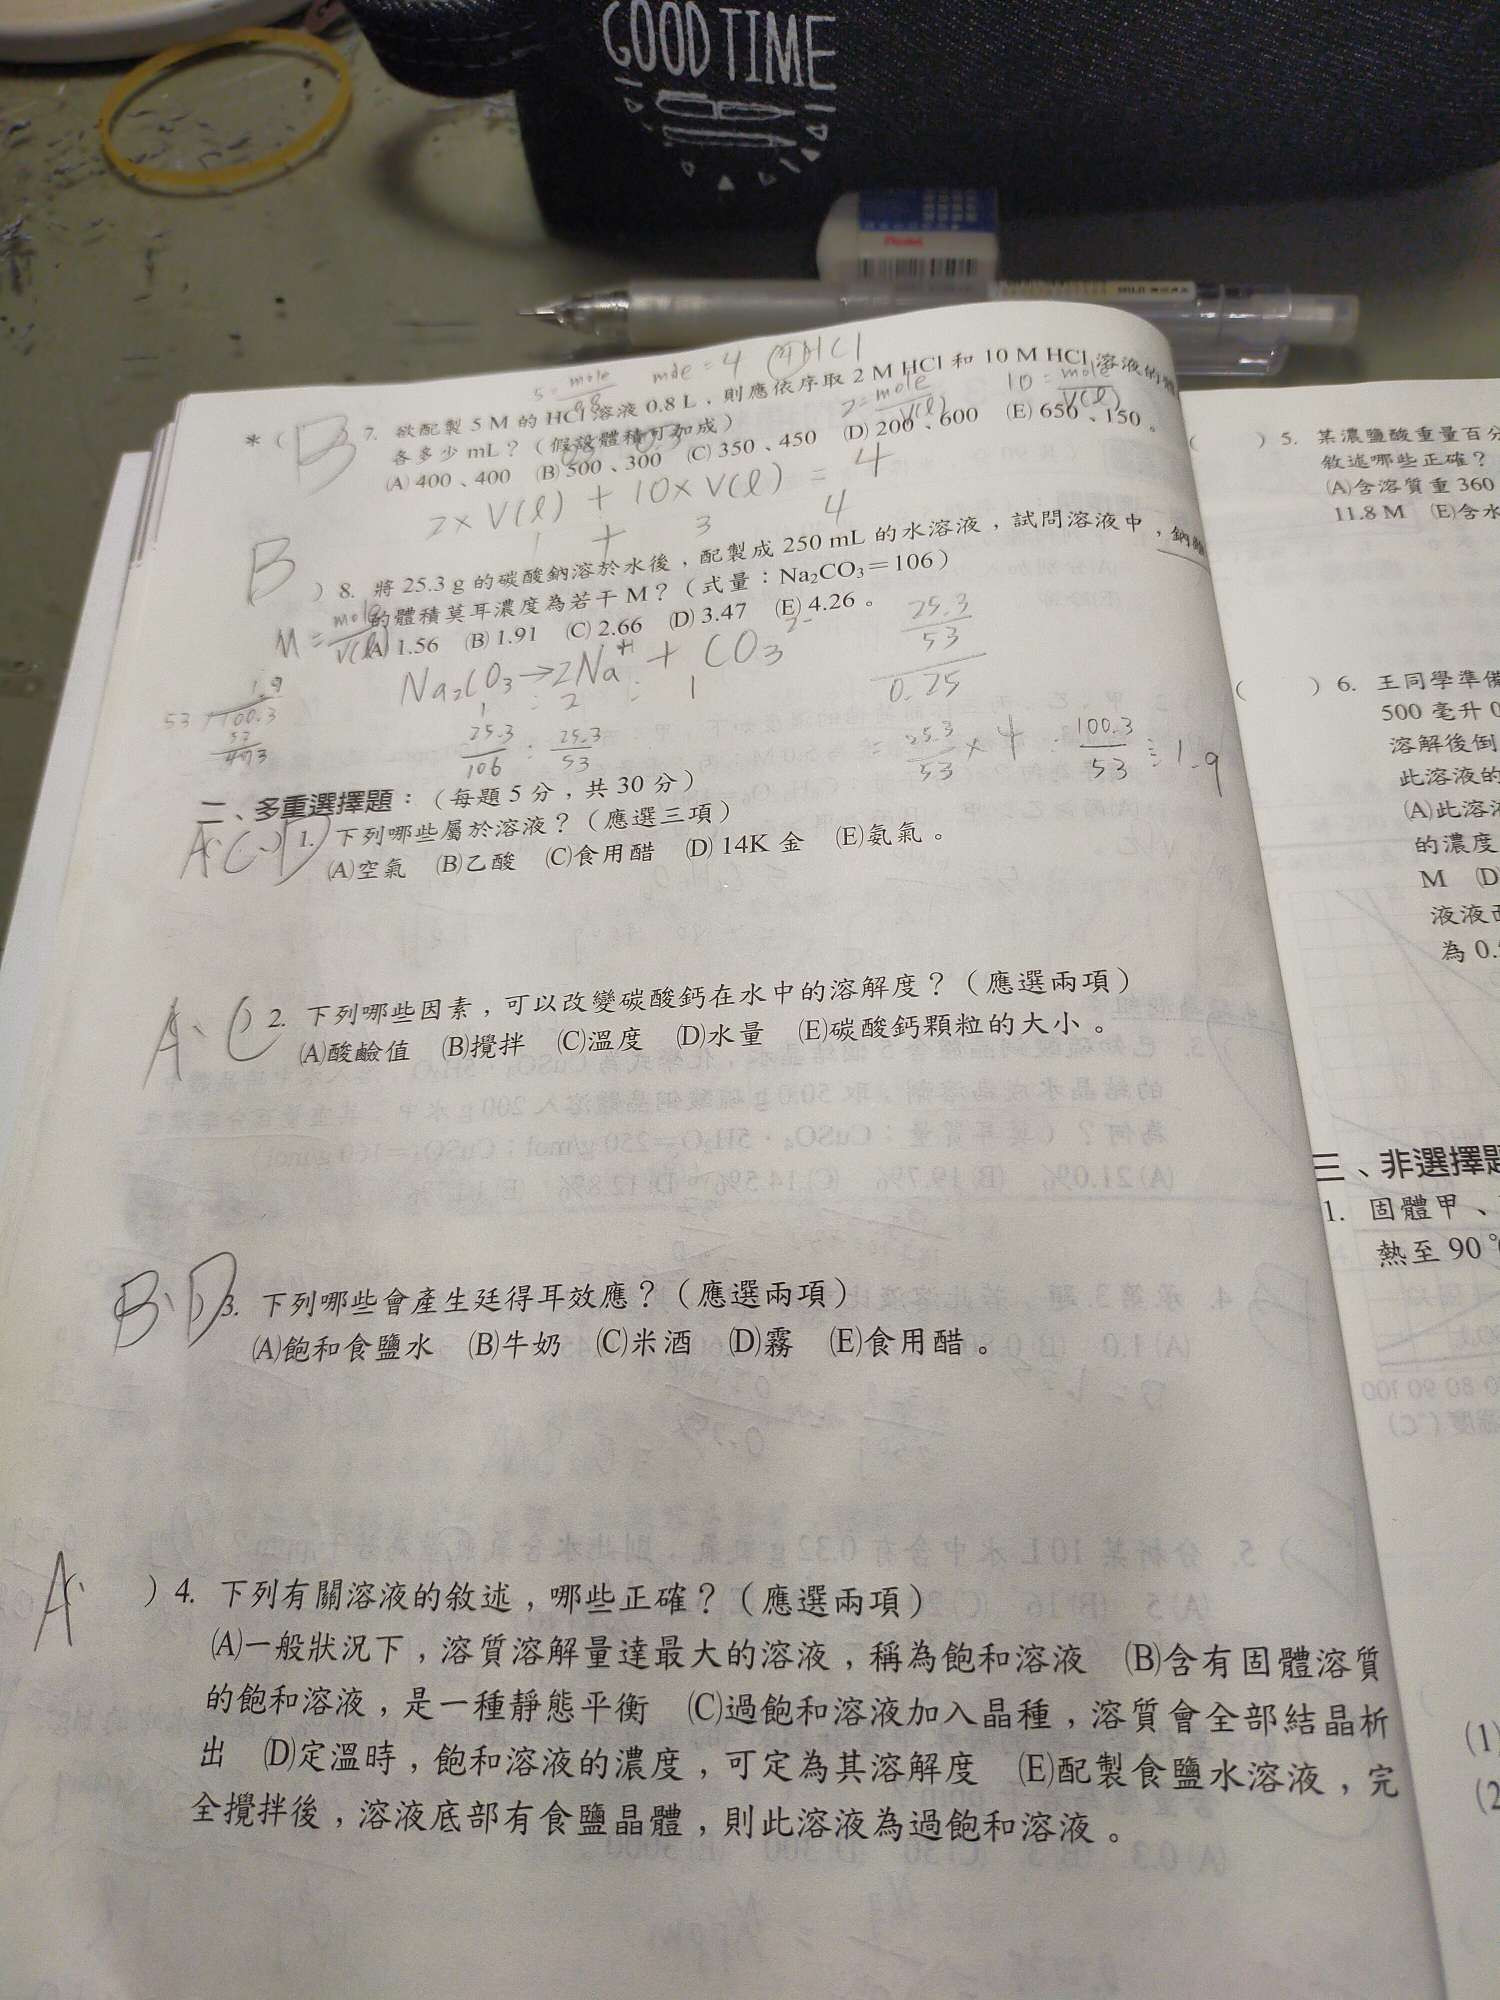 GOOD TIME
Pentel
5 = mole/0.8 mole = 4 HCl
*( B ) 7. 欲配製 5 M 的 HCl 溶液 0.8 L，則應依序取 2 M HCl 和 10 M HCl 溶液的體
各多少 mL？（假設體積可加成）
2 = mole/V(l) 10 = mole/V(l)
(A) 400、400 (B) 500、300 (C) 350、450 (D) 200、600 (E) 650、150。
2 x V(l) + 10 x V(l) = 4
1 + 3 4
B ) 8. 將 25.3 g 的碳酸鈉溶於水後，配製成 250 mL 的水溶液，試問溶液中，鈉
的體積莫耳濃度為若干 M？（式量：Na₂CO₃＝106）
M = mole/V(l)
(A) 1.56 (B) 1.91 (C) 2.66 (D) 3.47 (E) 4.26。
Na₂CO₃ → 2Na⁺ + CO₃²⁻
1 : 2 : 1
25.3/106 : 25.3/53
25.3/53
0.25
= 25.3/53 x 4 100.3/53 1.9
1.9
53 100.3
53
473
二、多重選擇題：（每題 5 分，共 30 分）
A、C、D ) 1. 下列哪些屬於溶液？（應選三項）
(A)空氣 (B)乙酸 (C)食用醋 (D) 14K 金 (E)氨氣。
A、C ) 2. 下列哪些因素，可以改變碳酸鈣在水中的溶解度？（應選兩項）
(A)酸鹼值 (B)攪拌 (C)溫度 (D)水量 (E)碳酸鈣顆粒的大小。
B、D ) 3. 下列哪些會產生廷得耳效應？（應選兩項）
(A)飽和食鹽水 (B)牛奶 (C)米酒 (D)霧 (E)食用醋。
A、 ) 4. 下列有關溶液的敘述，哪些正確？（應選兩項）
(A)一般狀況下，溶質溶解量達最大的溶液，稱為飽和溶液 (B)含有固體溶質
的飽和溶液，是一種靜態平衡 (C)過飽和溶液加入晶種，溶質會全部結晶析
出 (D)定溫時，飽和溶液的濃度，可定為其溶解度 (E)配製食鹽水溶液，完
全攪拌後，溶液底部有食鹽晶體，則此溶液為過飽和溶液。
( ) 5. 某濃鹽酸重量百分
敘述哪些正確？
(A)含溶質重 360
11.8 M (E)含水
( ) 6. 王同學準備
500 毫升 0
溶解後倒
此溶液的
(A)此溶液
的濃度
M (D)
液液面
為 0.
三、非選擇題
1. 固體甲、
熱至 90 °
(1)
(2